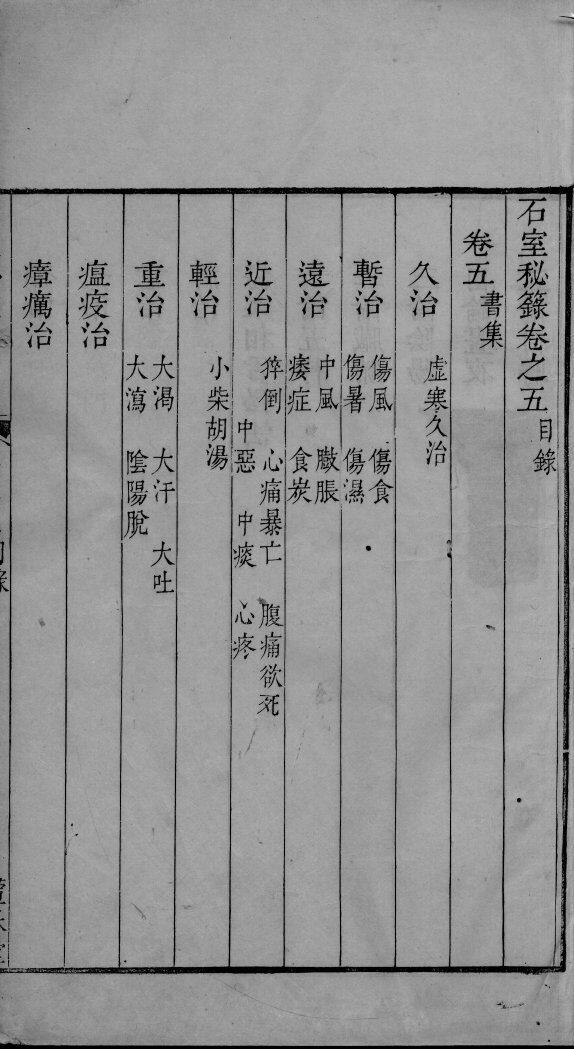 石室秘錄卷之五 目錄
卷五 書集
久治 虛寒久治
暫治 傷風 傷食
傷暑 傷濕
遠治 中風 臌脹
痿症 食炭
近治 猝倒 心痛暴亡 腹痛欲死
中惡 中痰 心疼
輕治 小柴胡湯
重治 大渴 大汗 大吐
大瀉 陰陽脫
瘟疫治
瘴癘治